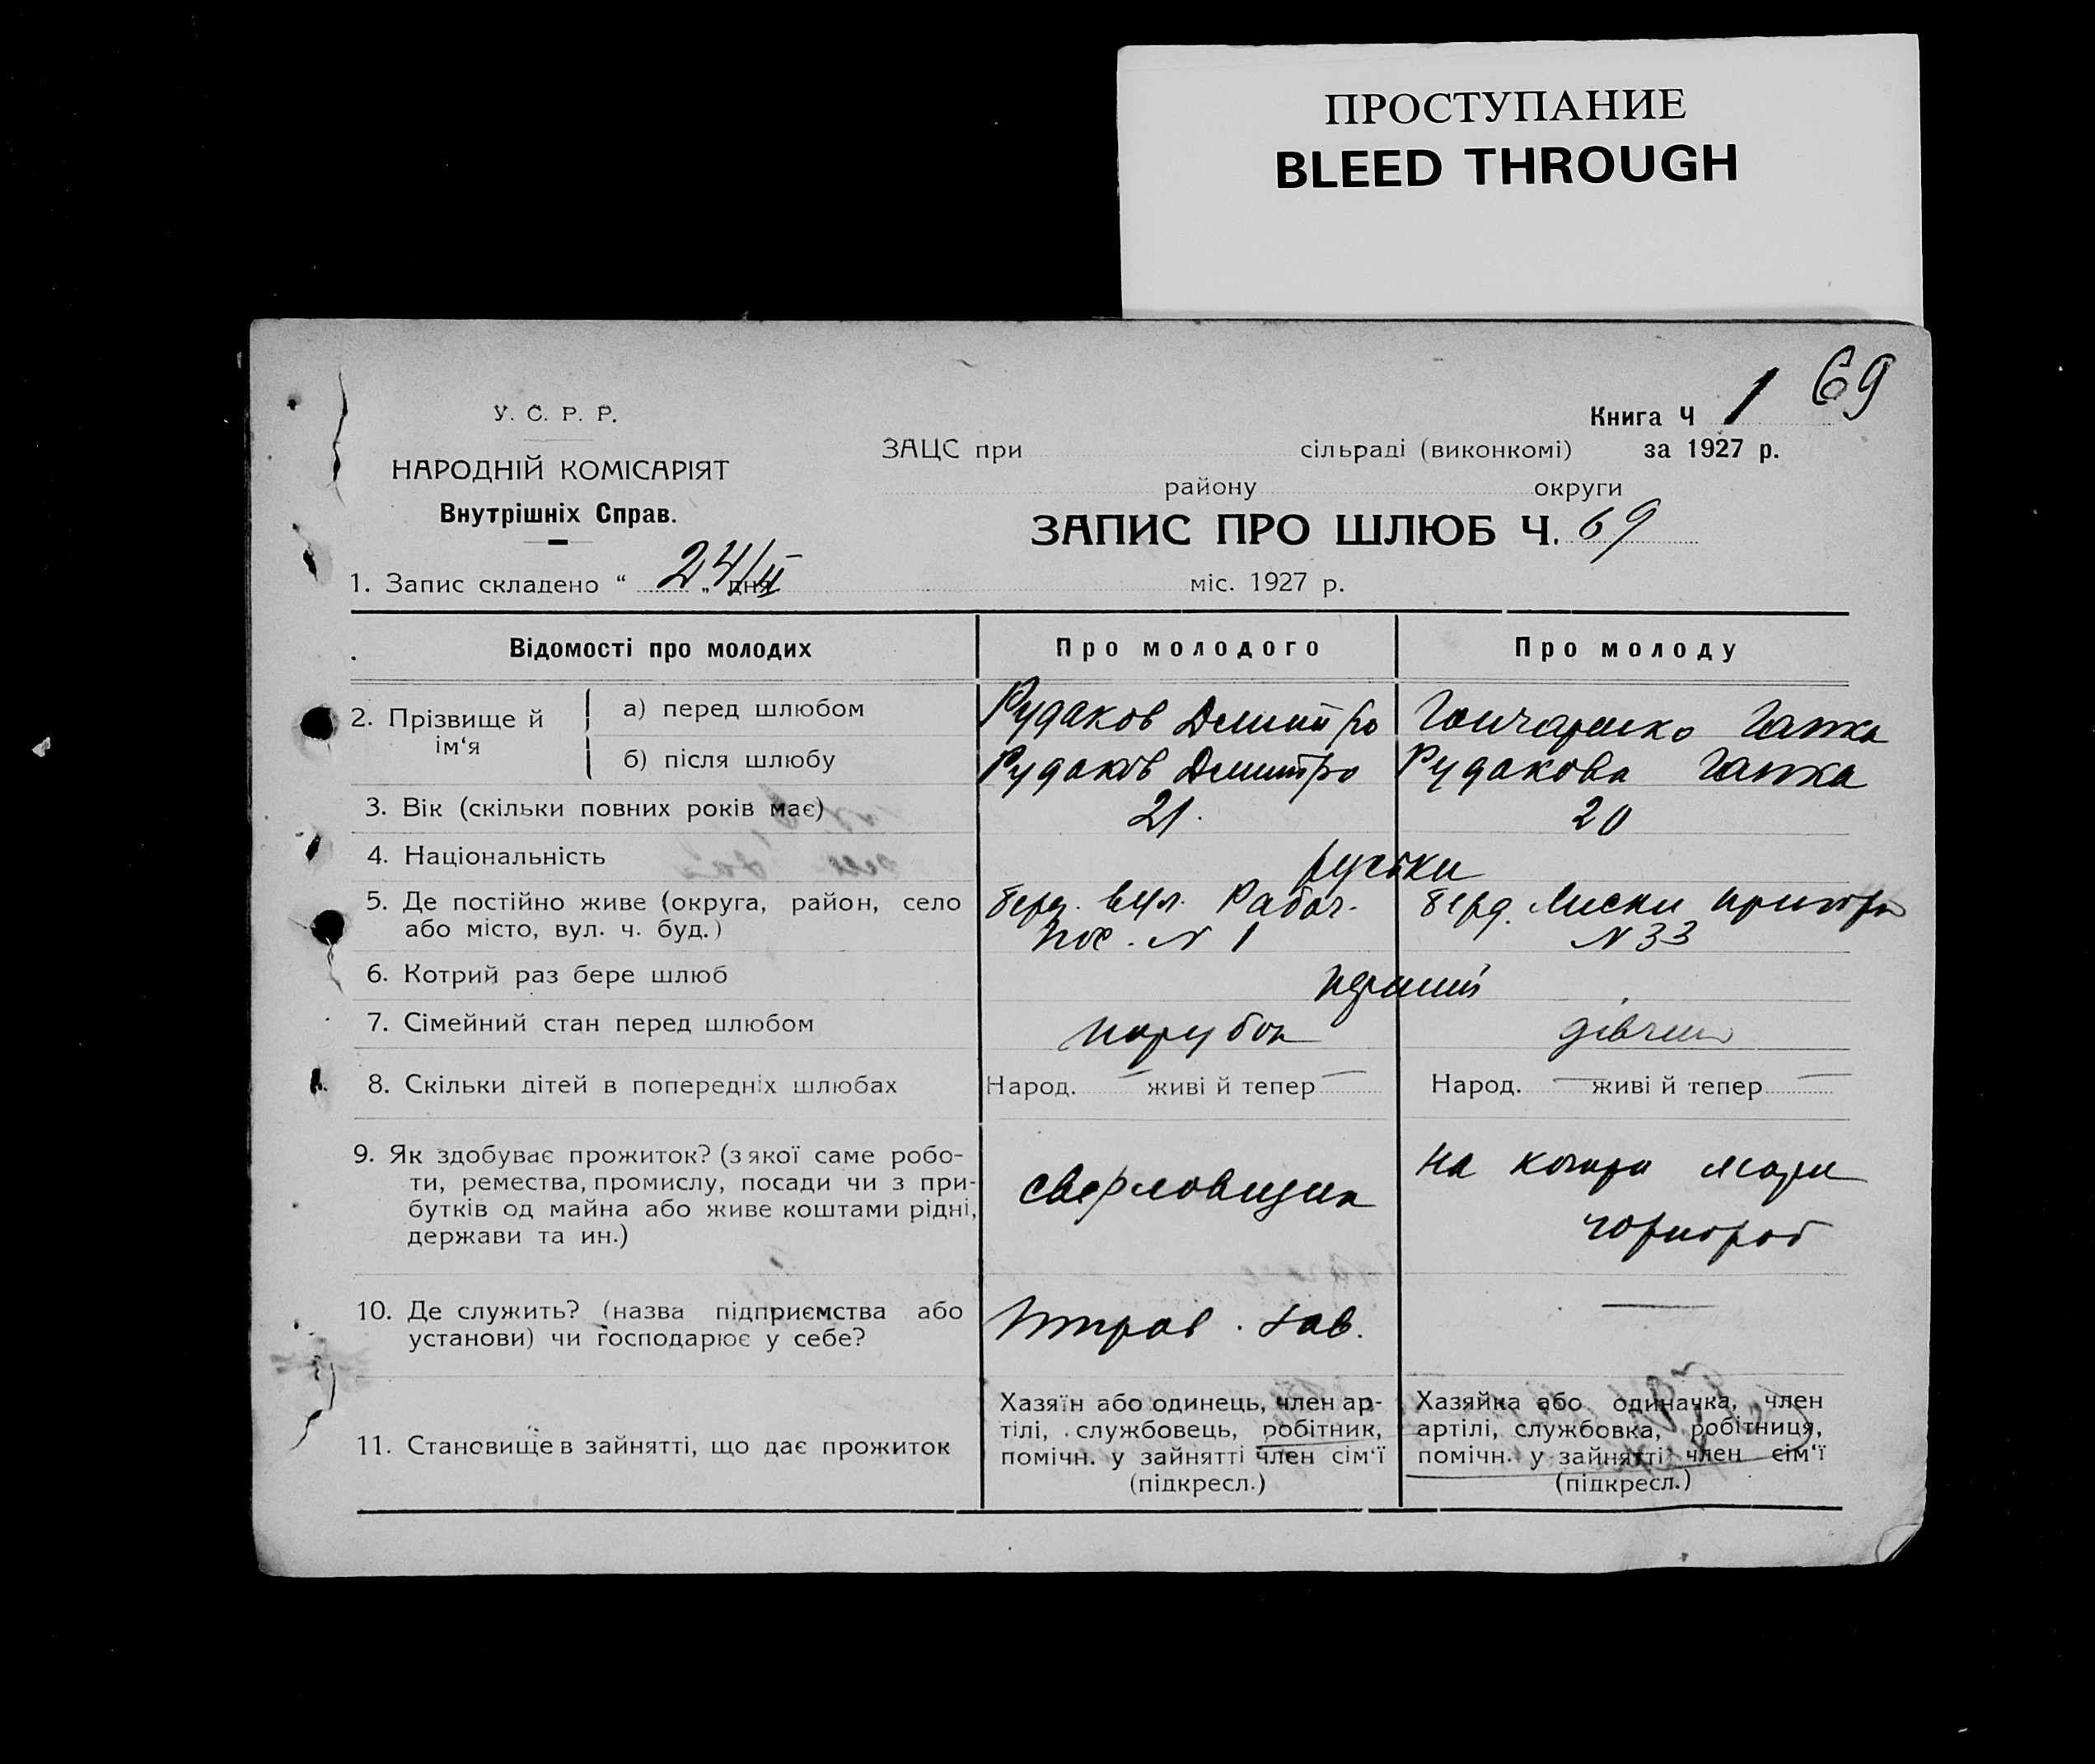 ПРОСТУПАНИЕ
BLEED THROUGH
69
У. С. Р. Р.
НАРОДНІЙ КОМІСАРІЯТ
Внутрішніх Справ.
Книга Ч 1
ЗАЦС при сільраді (виконкомі) за 1927 р.
району округи
ЗАПИС ПРО ШЛЮБ Ч. 69
1. Запис складено “ 24/II „ дня міс. 1927 р.
Відомості про молодих Про молодого Про молоду
2. Прізвище й ім‘я
а) перед шлюбом Рудаков Дмитро Гончаренко Гапка
б) після шлюбу Рудаков Дмитро Рудакова Гапка
3. Вік (скільки повних років має) 21. 20
4. Національність руські
5. Де постійно живе (округа, район, село
або місто, вул. ч. буд.)
Берд. вул. Рабоч.
пос. N 1
Берд. Лиски
N 33
6. Котрий раз бере шлюб перший
7. Сімейний стан перед шлюбом парубок дівчина
8. Скільки дітей в попередніх шлюбах Народ. — живі й тепер — Народ. — живі й тепер —
9. Як здобуває прожиток? (з якої саме робо-
ти, ремества, промислу, посади чи з при-
бутків од майна або живе коштами рідні,
держави та ин.)
сверловщик
на
чорнороб
10. Де служить? (назва підприємства або
установи) чи господарює у себе?
зав.
—
11. Становище в зайнятті, що дає прожиток
Хазяїн або одинець, член ар-
тілі, службовець, робітник,
помічн. у зайнятті член сім‘ї
(підкресл.)
Хазяйка або одиначка, член
артілі, службовка, робітниця,
помічн. у зайнятті член сім‘ї
(підкресл.)